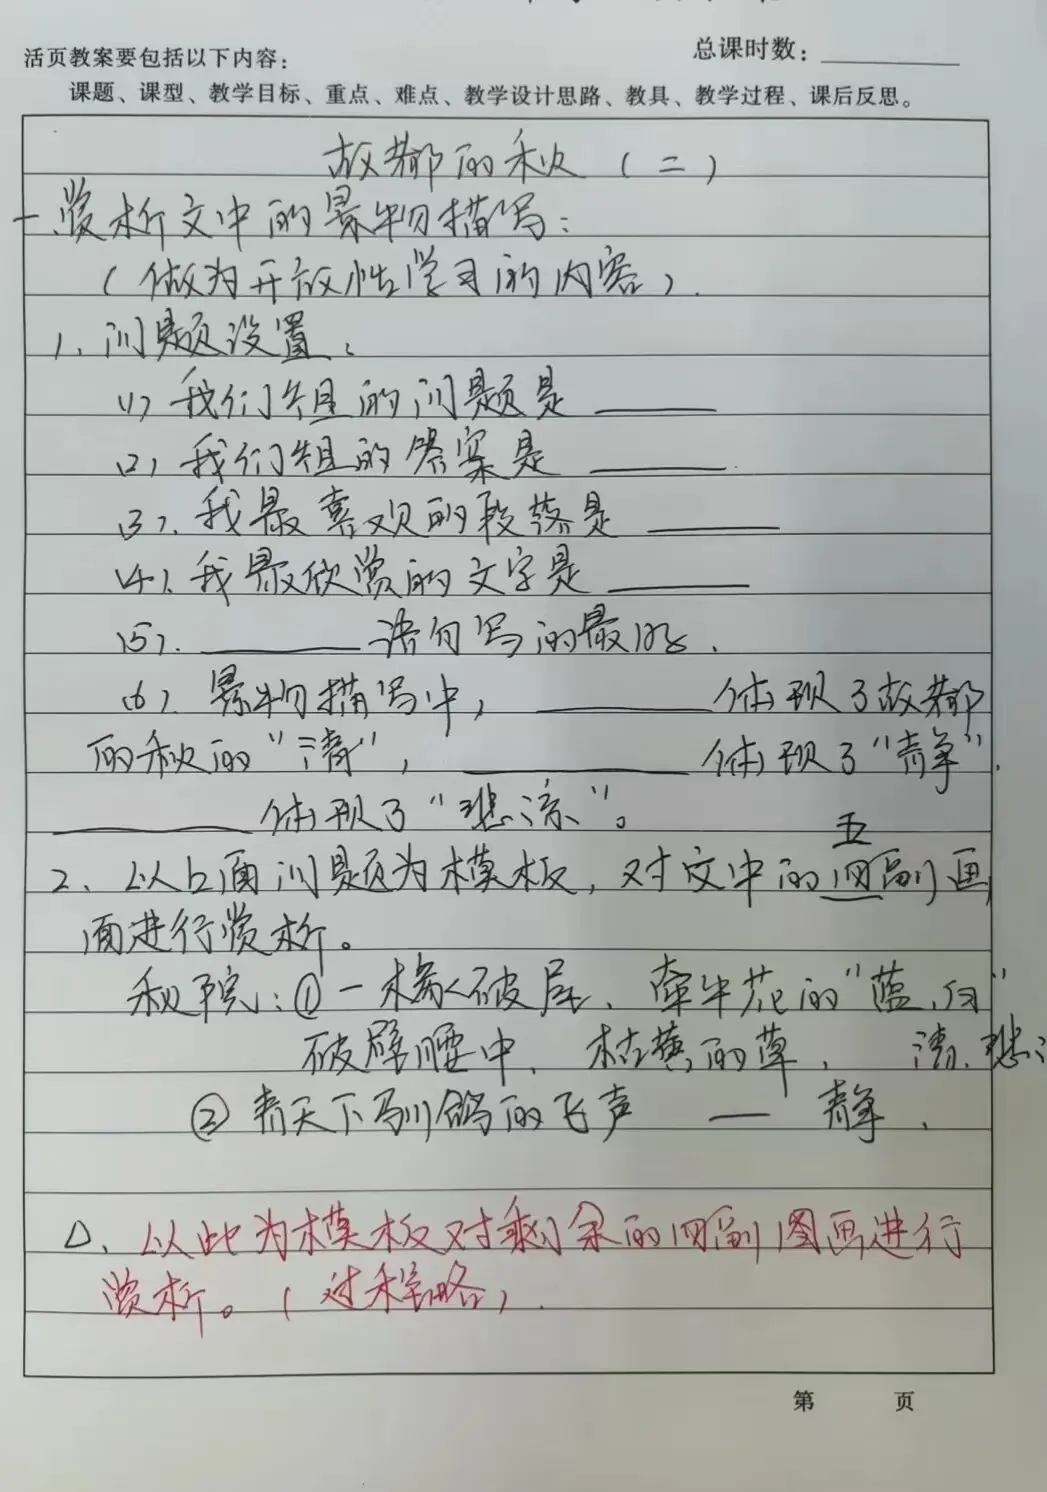 活页教案要包括以下内容：
总课时数：
课题、课型、教学目标、重点、难点、教学设计思路、教具、教学过程、课后反思。
故都的秋（二）
一、赏析文中的景物描写：
（做为开放性学习的内容）.
1、问题设置：
（1）我们组的问题是
（2）我们组的答案是
（3）、我最喜欢的段落是
（4）、我最欣赏的文字是
（5）、语句写的最好.
（6）、景物描写中， 体现了故都
的秋的“清”， 体现了“静”.
体现了“悲凉”。
五
2、以上面问题为模板，对文中的四副画
面进行赏析。
秋院：①一椽破屋、牵牛花的“蓝、白”
破壁腰中、枯黄的草、 清、悲
②青天下驯鸽的飞声 — 静、
△、以此为模板对剩余的四副图画进行
赏析。（过程略）.
第 页